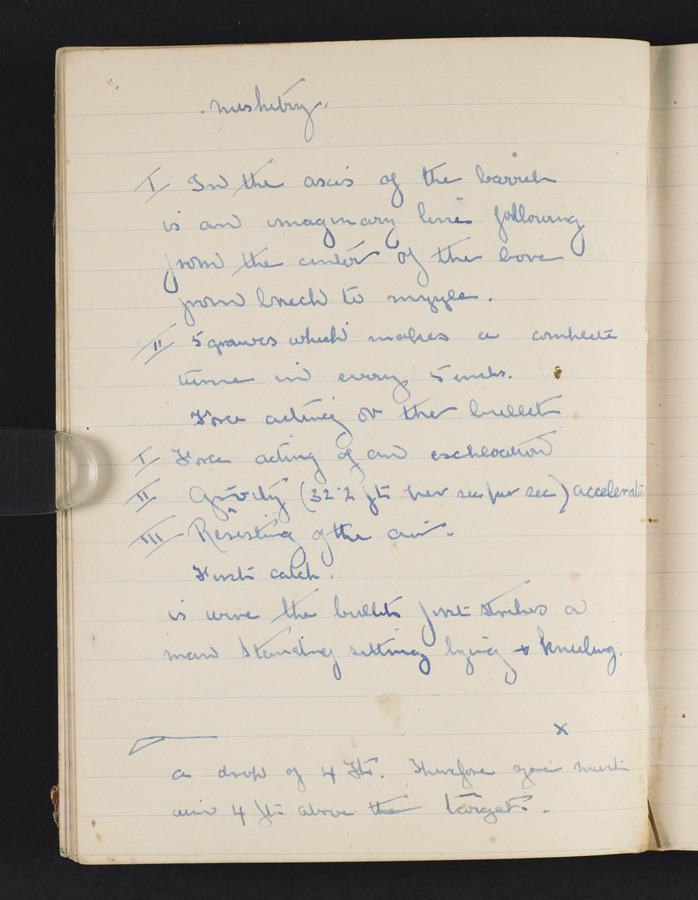 . Mushetry.
I In the axis of the barrel
is an imaginary line following
from the center of the bore
from breech to muzzle.
II 5 grouves which makes a complete
turne in every 5 inchs.
Force acting on the bullet
I Force acting of an
II Gravity (32.2 ft per sec per sec) acceleration
III Resisting of the air.
First catch.
is were the bullet first strikes a
man standing sitting lying + kneeling.
x
a drop of 4 Ft. Therefore you must
aim 4 ft above the target.